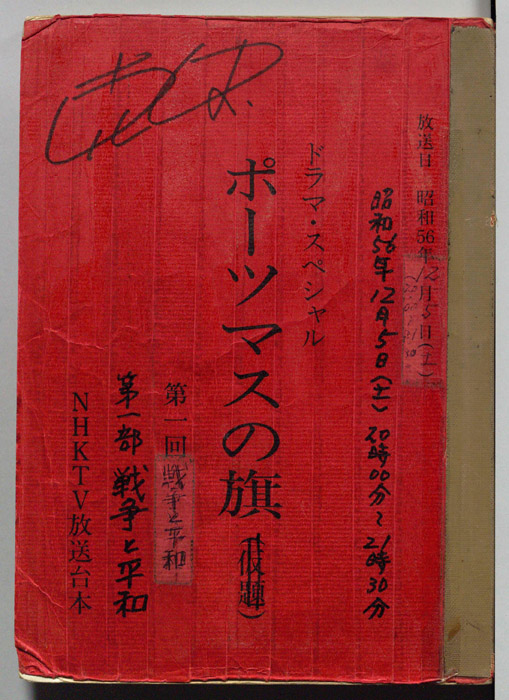 放送日　昭和56年12月5日(土)
昭和56年12月5日(土) 20時00分〜21時30分
ドラマ・スペシャル
ポーツマスの旗(仮題)
第一回 戦争と平和
第一部 戦争と平和
NHKTV放送台本